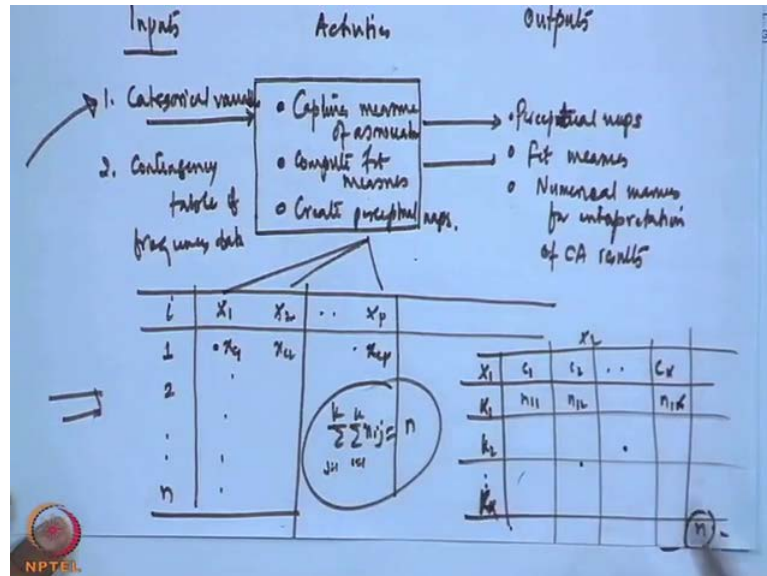 Inputs Activities Outputs
1. Categorical
2. Contingency
table of
frequency data
• Capture measure
of association
• Compute fit
measures
• Create perceptual maps.
• Perceptual maps
• Fit measures
• Numerical
for interpretation
of CA results
i x1 x2 .. xp
1 • x2 . xip
2
.
:
n
k k
Σ Σ nij = n
j=1 i=1
x2
x1 c1 c2 .. ck
k1 n11 n12 n1k
k2
n
NPTEL